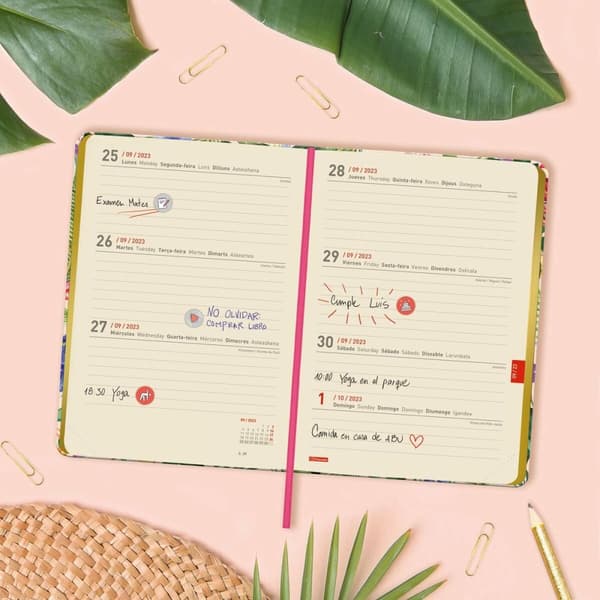 25 / 09 / 2023
Lunes Monday Segunda-feira Luns Dilluns Astelehena
Examen Mates
26 / 09 / 2023
Martes Tuesday Terça-feira Martes Dimarts Asteartea
NO OLVIDAR:
COMPRAR LIBRO
27 / 09 / 2023
Miércoles Wednesday Quarta-feira Mércores Dimecres Asteazkena
18:30 Yoga
09 / 2023
28 / 09 / 2023
Jueves Thursday Quinta-feira Xoves Dijous Osteguna
29 / 09 / 2023
Viernes Friday Sexta-feira Venres Divendres Ostirala
Cumple Luis
30 / 09 / 2023
Sábado Saturday Sábado Sábado Dissabte Larunbata
10:00 Yoga en el parque
09 / 23
1 / 10 / 2023
Domingo Sunday Domingo Domingo Diumenge Igandea
Comida en casa de IBU